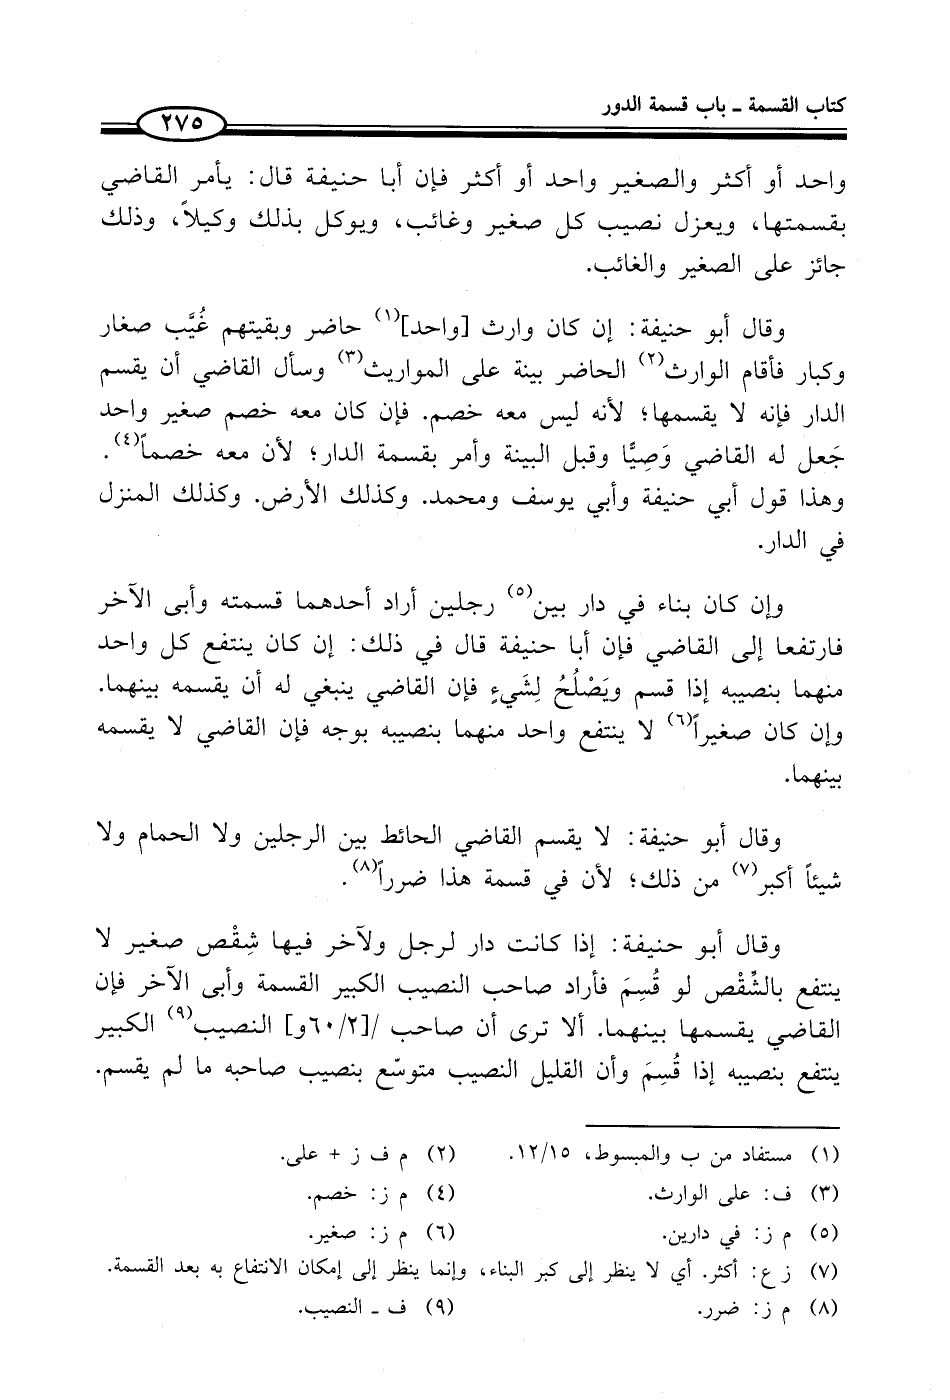 كتاب القسمة ـ باب قسمة الدور
٢٧٥
واحد أو أكثر والصغير واحد أو أكثر فإن أبا حنيفة قال: يأمر القاضي
بقسمتها، ويعزل نصيب كل صغير وغائب، ويوكل بذلك وكيلاً، وذلك
جائز على الصغير والغائب.
وقال أبو حنيفة: إن كان وارث [واحد](١) حاضر وبقيتهم غُيَّب صغار
وكبار فأقام الوارث(٢) الحاضر بينة على المواريث(٣) وسأل القاضي أن يقسم
الدار فإنه لا يقسمها؛ لأنه ليس معه خصم. فإن كان معه خصم صغير واحد
جَعل له القاضي وَصِيًّا وقبل البينة وأمر بقسمة الدار؛ لأن معه خصماً(٤).
وهذا قول أبي حنيفة وأبي يوسف ومحمد. وكذلك الأرض. وكذلك المنزل
في الدار.
وإن كان بناء في دار بين(٥) رجلين أراد أحدهما قسمته وأبى الآخر
فارتفعا إلى القاضي فإن أبا حنيفة قال في ذلك: إن كان ينتفع كل واحد
منهما بنصيبه إذا قسم ويَصْلُحُ لِشَيءٍ فإن القاضي ينبغي له أن يقسمه بينهما.
وإن كان صغيراً(٦) لا ينتفع واحد منهما بنصيبه بوجه فإن القاضي لا يقسمه
بينهما.
وقال أبو حنيفة: لا يقسم القاضي الحائط بين الرجلين ولا الحمام ولا
شيئاً أكبر(٧) من ذلك؛ لأن في قسمة هذا ضرراً(٨).
وقال أبو حنيفة: إذا كانت دار لرجل ولآخر فيها شِقْص صغير لا
ينتفع بالشِّقْص لو قُسِمَ فأراد صاحب النصيب الكبير القسمة وأبى الآخر فإن
القاضي يقسمها بينهما. ألا ترى أن صاحب /[٦٠/٢و] النصيب(٩) الكبير
ينتفع بنصيبه إذا قُسِمَ وأن القليل النصيب متوسّع بنصيب صاحبه ما لم يقسم.
(١) مستفاد من ب والمبسوط، ١٢/١٥. (٢) م ف ز + على.
(٣) ف: على الوارث. (٤) م ز: خصم.
(٥) م ز: في دارين. (٦) م ز: صغير.
(٧) ز ع: أكثر. أي لا ينظر إلى كبر البناء، وإنما ينظر إلى إمكان الانتفاع به بعد القسمة.
(٨) م ز: ضرر. (٩) ف ـ النصيب.